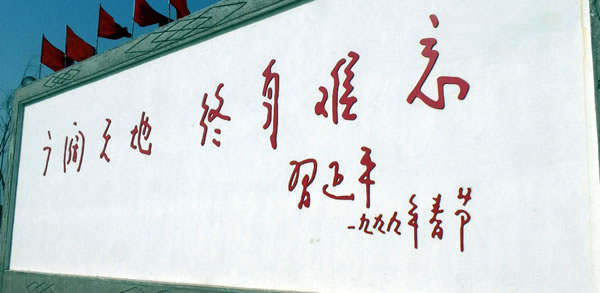 广阔天地 终身难忘
习近平
一九九九年春节